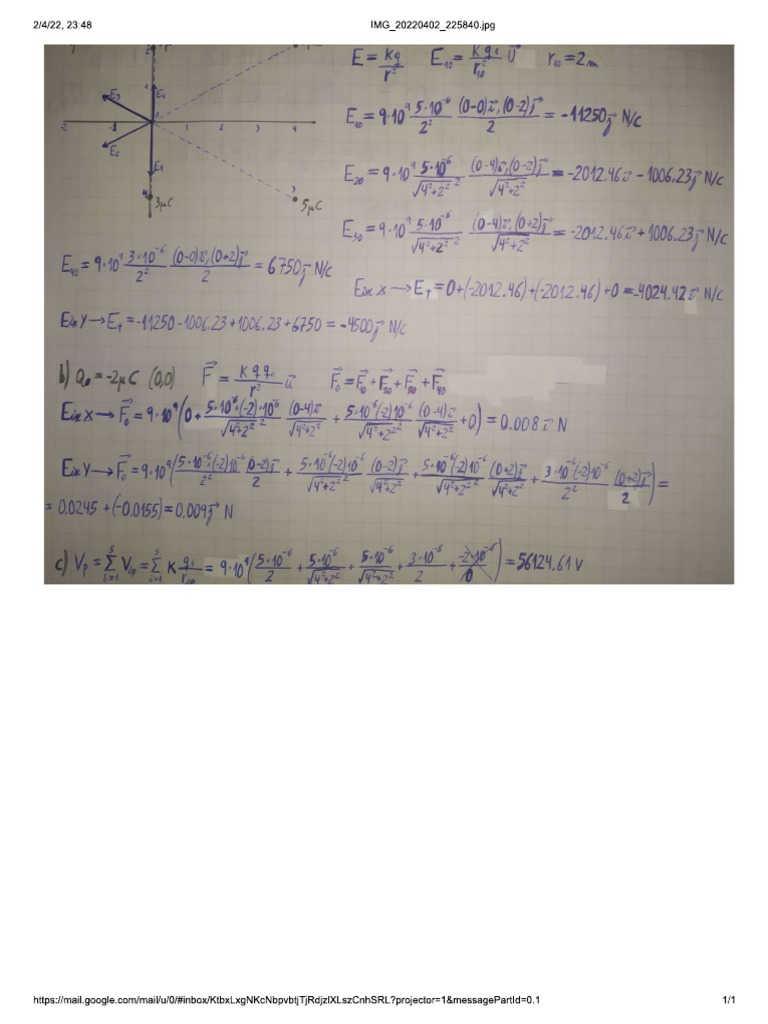 2/4/22, 23:48 IMG_20220402_225840.jpg
E = Kq/r² E₁₀ = Kq₁/r₁₀² u⃗ r₁₀ = 2m
E₁₀ = 9·10⁹ 5·10⁻⁶/2² (0-0)i⃗,(0-2)j⃗/2 = -11250j⃗ N/C
E₃ E₄
-2 -1 1 2 3 4
E₂ E₁
E₂₀ = 9·10⁹ 5·10⁻⁶/√4²+2²² (0-4)i⃗,(0-2)j⃗/√4²+2² = -2012.46i⃗ - 1006.23j⃗ N/C
3μC 3 5μC
E₃₀ = 9·10⁹ 5·10⁻⁶/√4²+2²² (0-4)i⃗,(0+2)j⃗/√4²+2² = -2012.46i⃗ + 1006.23j⃗ N/C
E₄₀ = 9·10⁹ 3·10⁻⁶/2² (0-0)i⃗,(0+2)j⃗/2 = 6750j⃗ N/C
Eix X → E_T = 0+(-2012.46)+(-2012.46)+0 = -4024.42i⃗ N/C
Eix Y → E_T = -11250-1006.23+1006.23+6750 = -4500j⃗ N/C
b) Q₀ = -2μC (0,0) F⃗ = K q q₀/r² u⃗ F⃗₀ = F⃗₁₀ + F⃗₂₀ + F⃗₃₀ + F⃗₄₀
Eix X → F⃗₀ = 9·10⁹(0 + 5·10⁻⁶·(-2)·10⁻⁶/√4²+2²² (0-4)i⃗/√4²+2² + 5·10⁻⁶(-2)10⁻⁶/√4²+2²² (0-4)i⃗/√4²+2² + 0) = 0.008i⃗ N
Eix Y → F⃗₀ = 9·10⁹(5·10⁻⁶·(-2)10⁻⁶/2² (0-2)j⃗/2 + 5·10⁻⁶(-2)10⁻⁶/√4²+2²² (0-2)j⃗/√4²+2² + 5·10⁻⁶(-2)10⁻⁶/√4²+2²² (0+2)j⃗/√4²+2² + 3·10⁻⁶(-2)10⁻⁶/2² (0+2)j⃗/2) =
= 0.0245 + (-0.0155) = 0.009j⃗ N
c) Vp = Σ⁵ᵢ₌₁ Vᵢₚ = Σ⁵ᵢ₌₁ K qᵢ/rᵢₚ = 9·10⁹(5·10⁻⁶/2 + 5·10⁻⁶/√4²+2² + 5·10⁻⁶/√4²+2² + 3·10⁻⁶/2 + -2·10⁻⁶/0) = 56124.61 V
https://mail.google.com/mail/u/0/#inbox/KtbxLxgNKcNbpvbtjTjRdjzlXLszCnhSRL?projector=1&messagePartId=0.1 1/1